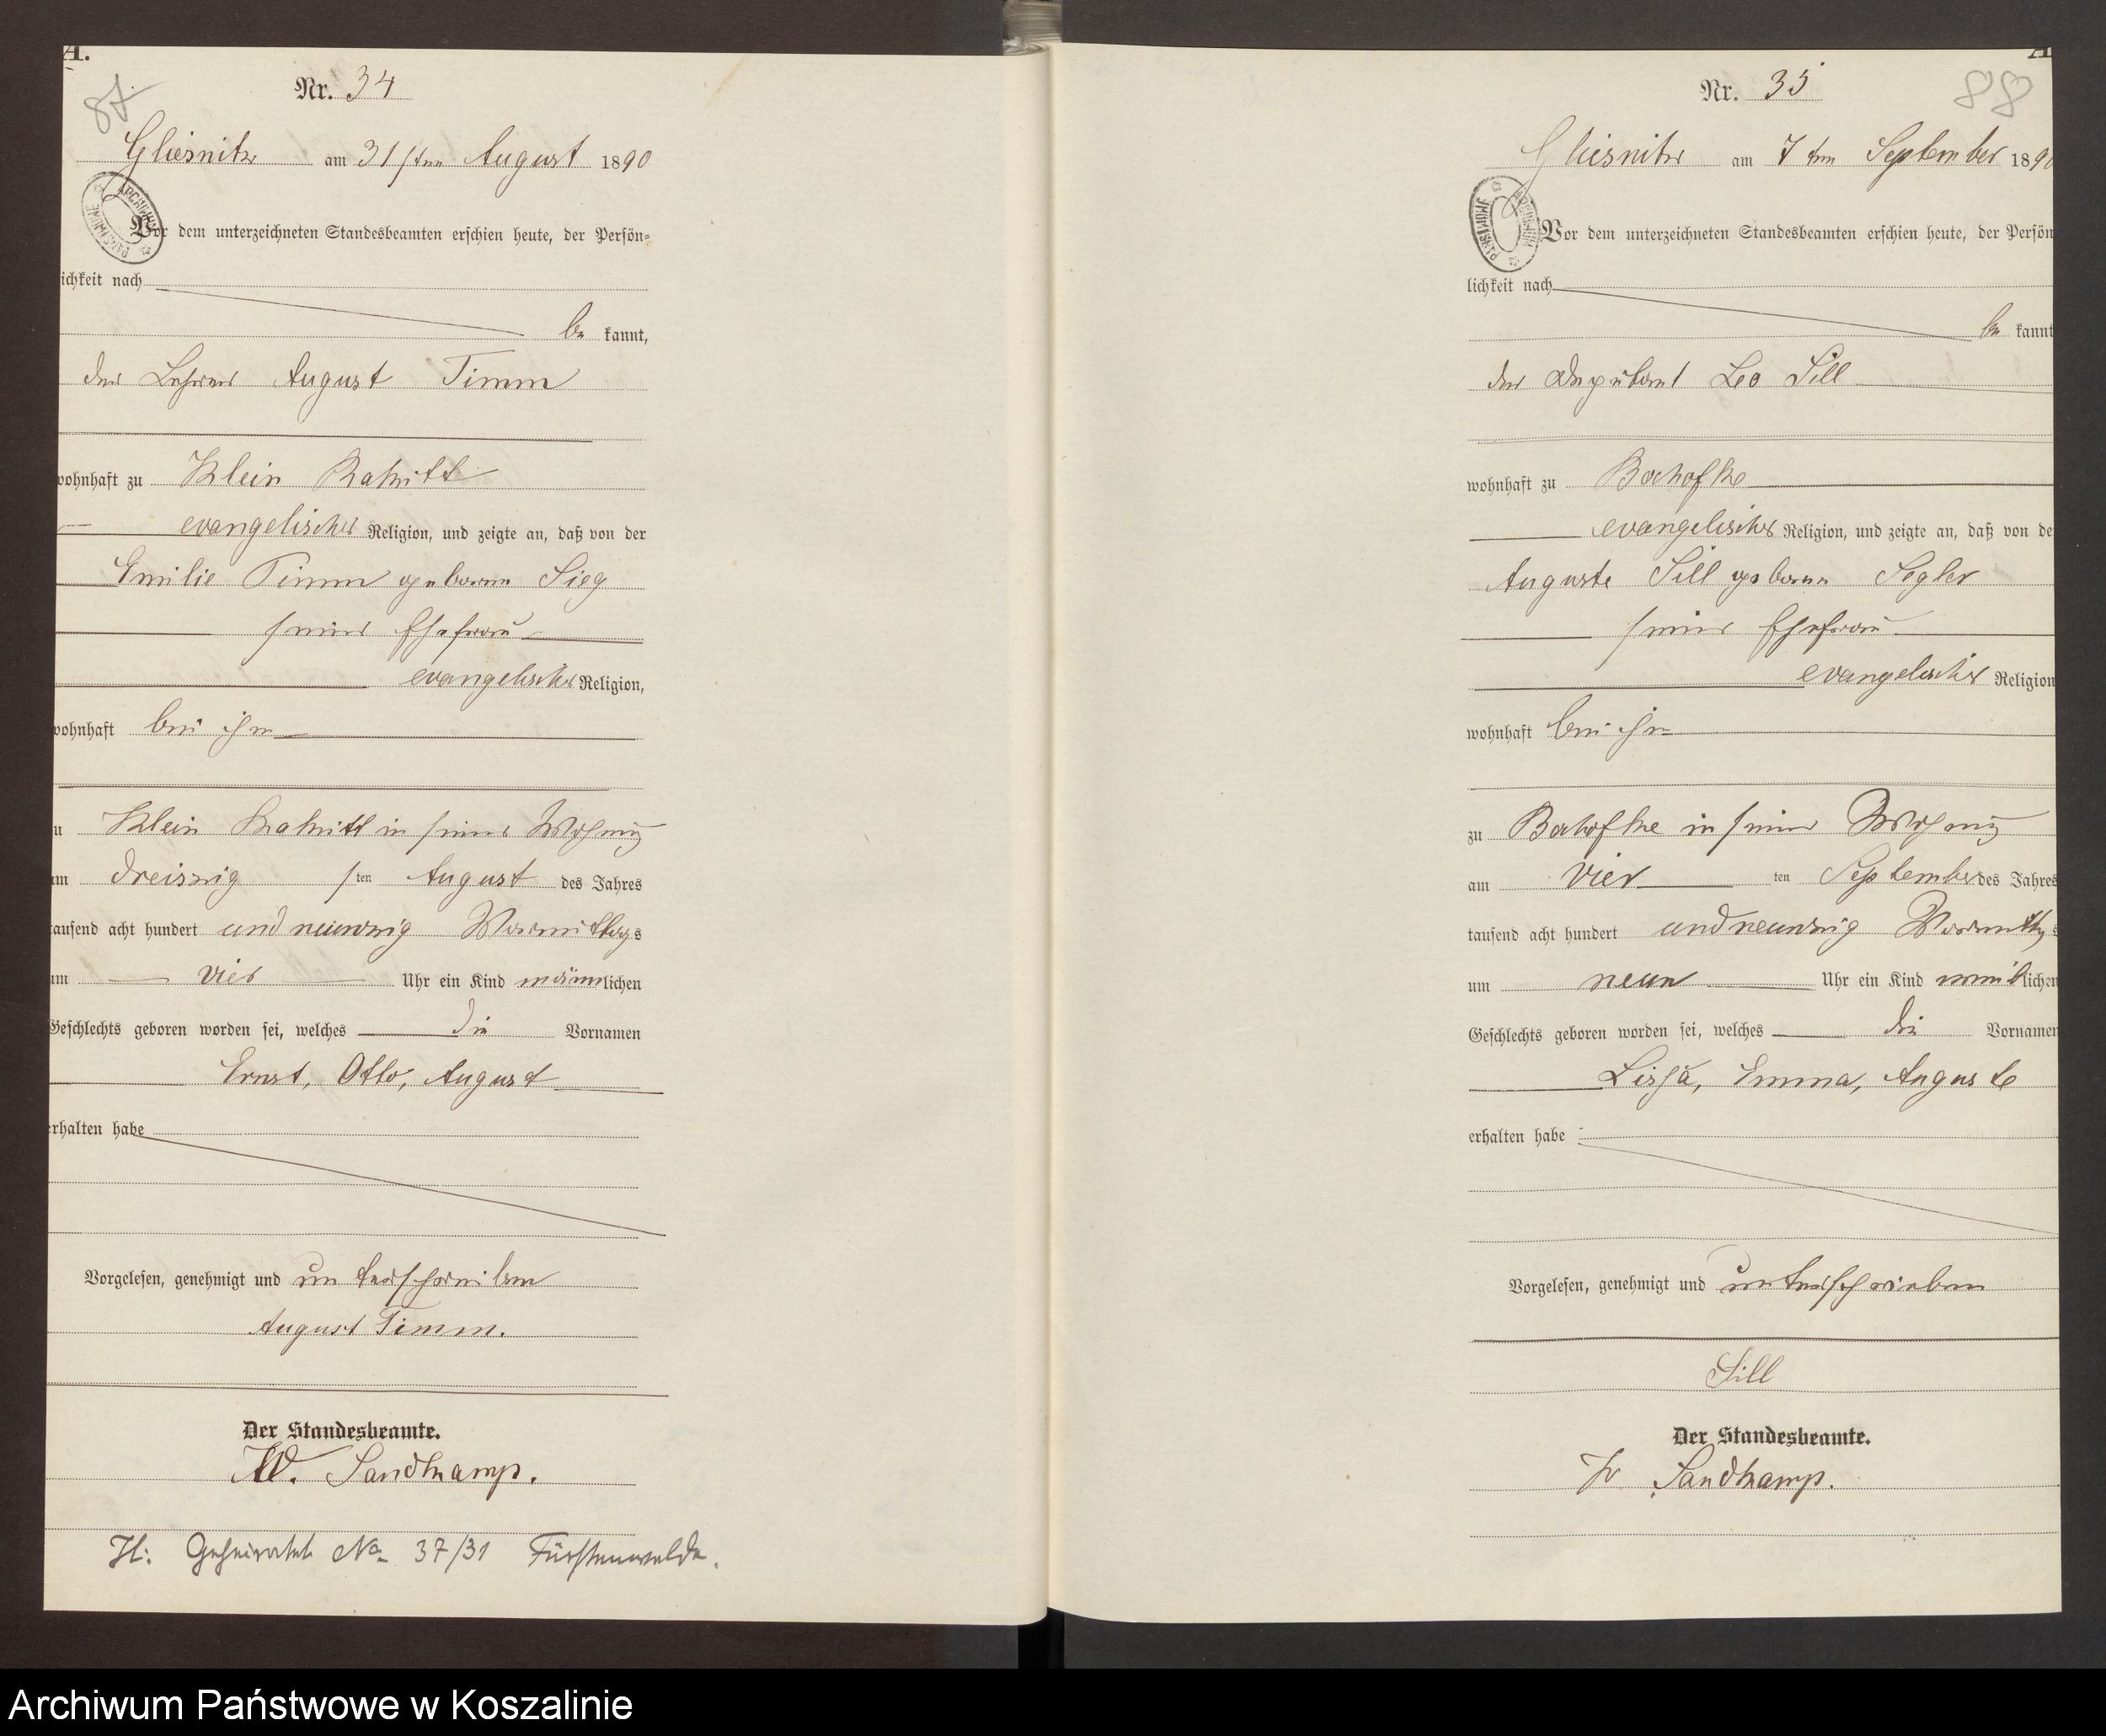 A.
87.
Nr. 34
Gliesnitz am 31sten August 1890
ARCHIWUM PAŃSTWOWE
Vor dem unterzeichneten Standesbeamten erschien heute, der Persön=
ichkeit nach
be kannt,
der Lehrer August Timm
wohnhaft zu Klein Rakitt
evangelischer Religion, und zeigte an, daß von der
Emilie Timm geborene Sieg
seiner Ehefrau
evangelischer Religion,
wohnhaft bei ihm
u Klein Rakitt in seiner Wohnung
am dreiszig sten August des Jahres
tausend acht hundert und neunzig Vormittags
um vier Uhr ein Kind männlichen
Geschlechts geboren worden sei, welches die Vornamen
Ernst, Otto, August
erhalten habe
Vorgelesen, genehmigt und unterschrieben
August Timm.
Der Standesbeamte.
W. Sandkamp.
H: Geheiratet No 37/31 Fürstenwalde.
A
88
Nr. 35
Gliesnitz am 7ten September 1890
PAŃSTWOWE ARCHIWUM
Vor dem unterzeichneten Standesbeamten erschien heute, der Persön
lichkeit nach
be kannt
der Deputant Leo Sill
wohnhaft zu Bochofke
evangelischer Religion, und zeigte an, daß von de
Auguste Sill geborene Segler
seiner Ehefrau
evangelischer Religion
wohnhaft bei ihm
zu Bochofke in seiner Wohnung
am vier ten September des Jahres
tausend acht hundert und neunzig Vormittags
um neun Uhr ein Kind weiblichen
Geschlechts geboren worden sei, welches die Vornamen
Emma, Auguste
erhalten habe
Vorgelesen, genehmigt und unterschrieben
Sill
Der Standesbeamte.
Sandkamp.
Archiwum Państwowe w Koszalinie